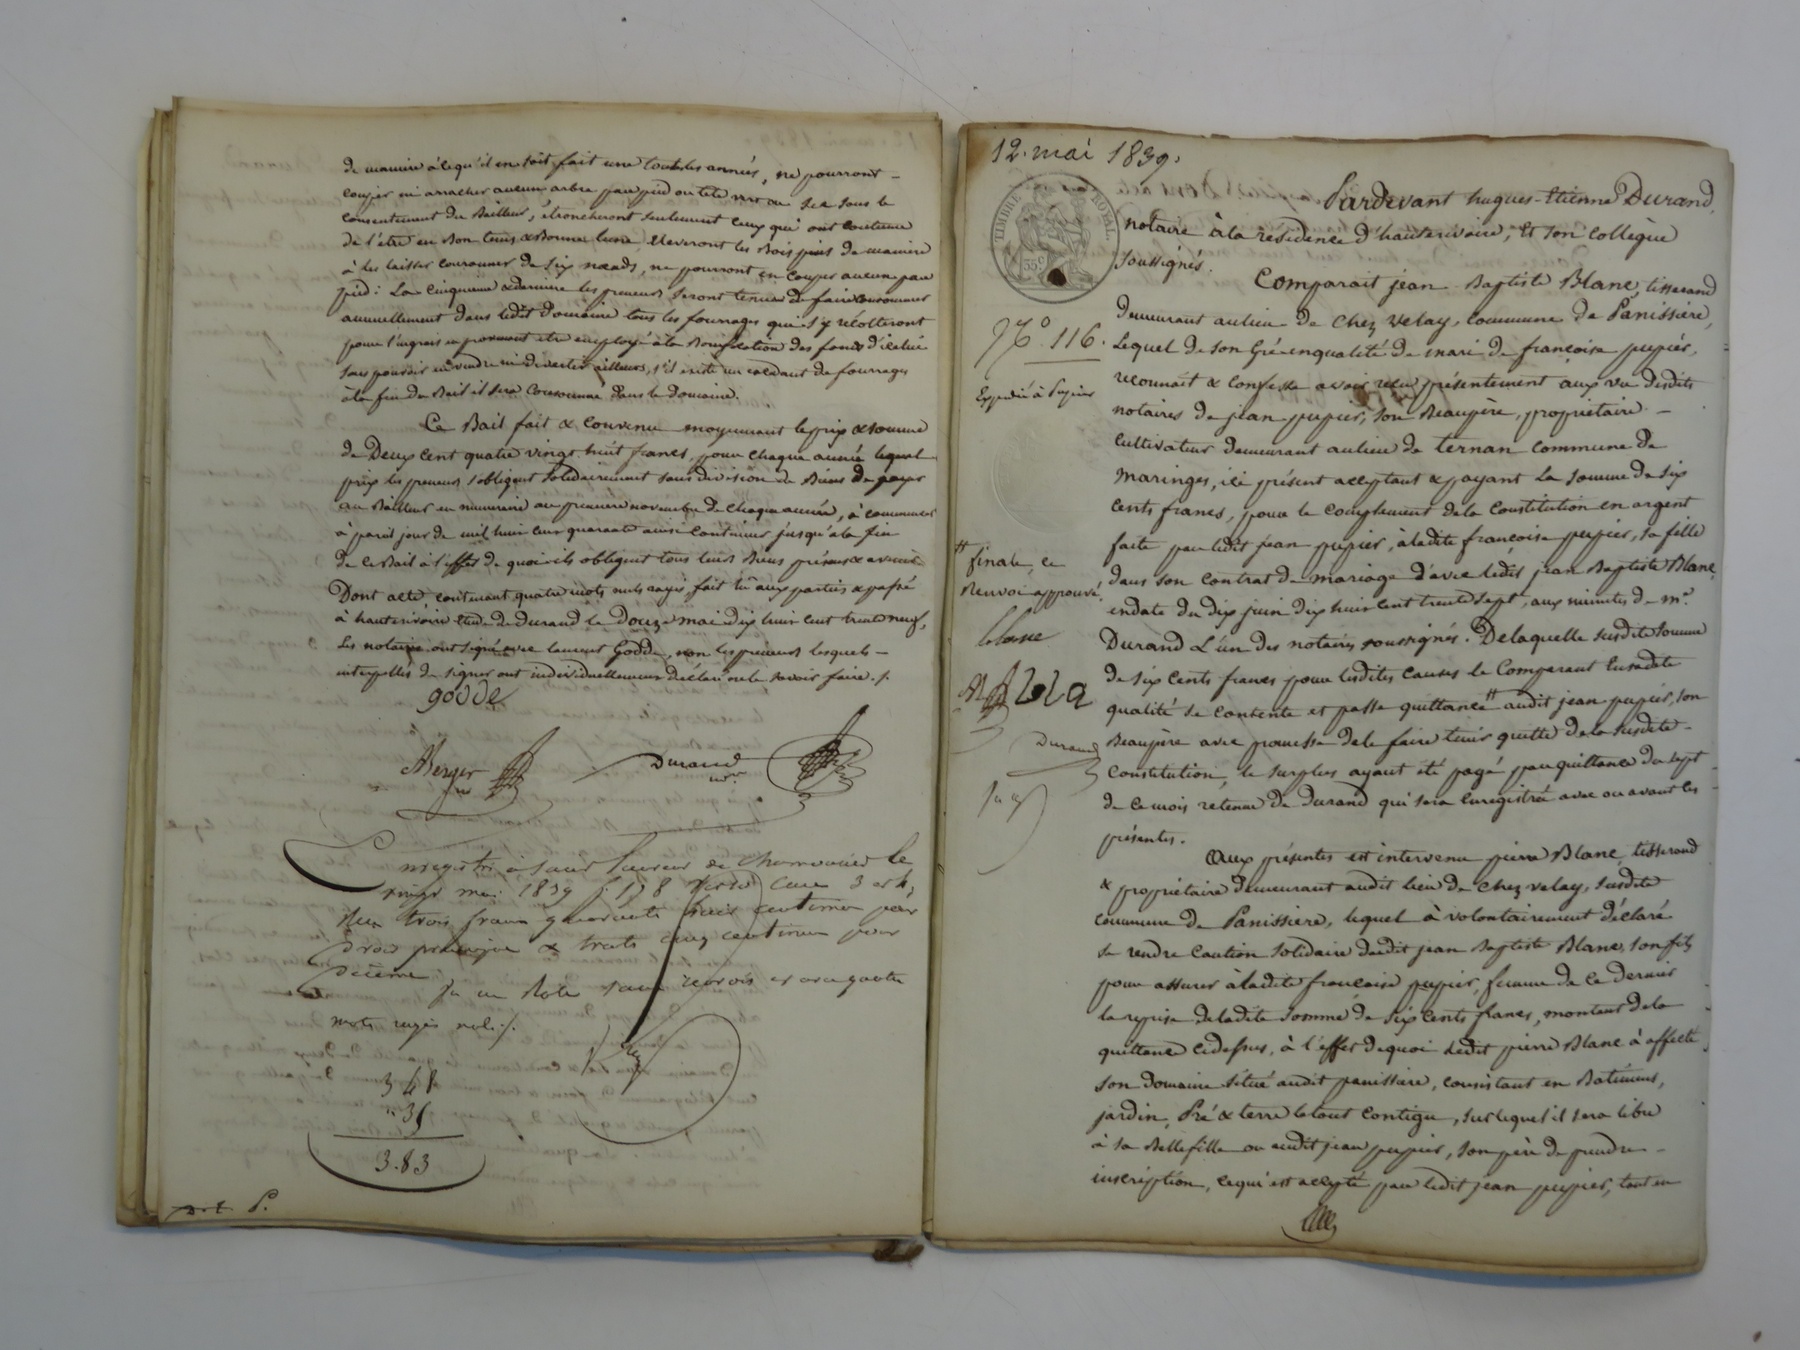 de maniere à ce qu'il en soit fait une toutes les années, ne pourront -
couper ni arracher aucun arbre par pied ou tete vert ou sec sans le
consentement du Bailleur, étroncheront seulement ceux qui ont coutume
de l'être en Bon tems & Bonne lune, éleveront les Bois pins de maniere
à les laisser couronner de six nœuds, ne pourront en couper aucun par
pied: La cinquieme & derniere les preneurs seront tenus de faire consommer
annuellement dans ledit domaine tous les fourrages qui s'y récolteront
pour l'engrais en provenant etre employé à la Bonification des fonds d'icelui
sans pouvoir en vendre ni divertir ailleurs, s'il existe un excédant de fourrages
à la fin du Bail il sera consommé dans le domaine.
Ce Bail fait & convenu moyennant le prix & somme
de Deux cent quatre vingt huit francs, pour chaque année lequel
prix les preneurs s'obligent solidairement sans division de Biens de payer
au Bailleur en numeraire au premier novembre de chaque année, à commencer
à pareil jour de mil huit cent quarante ainsi continuer jusqu'à la fin
de ce Bail à l'effet de quoi ils obligent tous leurs Biens présens & avenir
Dont acte, contenant quatre mots nuls rayés, fait lu aux parties & passé
à hauterivoire etude de durand le Douze mai dix huit cent trente neuf,
Les notaires ont signé avec laurent Godde, non les preneurs lesquels -
interpellés de signer ont individuellement déclaré ne le savoir faire ./.
godde
ABerger
nre
Durand
nre
Enregistré à Saint Laurent de Chamousset le
vingt mai 1839 f. 178 verso case 3 et 4,
Reçu trois francs quarante huit centimes pour
Droit principal & trente cinq centimes pour
Décime
un Role sans renvois et avec quatre
mots rayés nuls ./.
3 48
" 35
3.83
12. mai 1839.
TIMBRE ROYAL
35c
Pardevant hugues-Etienne Durand,
notaire à la residence d'hauterivoire, et son collègue
soussignés.
Comparait jean Baptiste Blanc, tisserand
demeurant au lieu de Chez Velay, commune de Panissiere,
Lequel de son gré en qualité de mari de françoise pupier,
reconnait & confesse avoir reçu présentement aux vu desdits
notaires de jean pupier, son Beaupère, propriétaire -
cultivateur demeurant au lieu de ternan commune de
Maringes, ici présent acceptant & payant La somme de six
cents francs, pour le complement de la constitution en argent
faite par ledit jean pupier, à ladite françoise pupier, sa fille
dans son contrat de mariage d'avec ledit jean Baptiste Blanc,
en date du dix juin dix huit cent trente sept, aux minutes de me.
Durand L'un des notaires soussignés. De laquelle susdite somme
de six cents francs pour lesdites causes le Comparant en sadite
qualité se contente et passe quittance # audit jean pupier, son
Beaupère avec promesse de le faire tenir quitte de la susdite -
Constitution, le surplus ayant été payé par quittance du sept
de ce mois retenue de Durand qui sera enregistrée avec ou avant les
présentes.
Aux présentes est intervenu pierre Blanc, tisserand
& propriétaire demeurant audit lieu de Chez Velay, susdite
commune de Panissiere, lequel à volontairement déclaré
se rendre caution solidaire dudit jean Baptiste Blanc, son fils
pour assurer à ladite françoise pupier, femme de ce dernier
la reprise de ladite somme de six cents francs, montant de la
quittance cidessus, à l'effet de quoi ledit pierre Blanc à affecté
son domaine situé audit panissiere, consistant en Batimens,
jardin, Pré & terre le tout contigu, sur lequel il sera libre
à sa Bellefille ou audit jean pupier, son père de prendre -
inscription, ce qui est accepté par ledit jean pupier, tout en
No. 116.
Expedié à Pupier
# finale, ce
Renvoi approuvé,
blanc
Durand